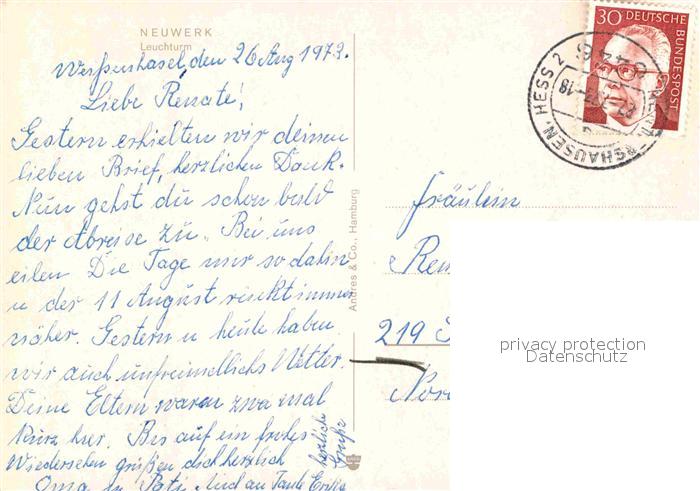 NEUWERK
Leuchturm
Weißenhasel, den 26 Aug 1973.
Liebe Renate!,
Gestern erhielten wir deinen
lieben Brief, herzlichen Dank.
Nun gehst du schon bald
der Abreise zu. Bei uns
eilen Die Tage nur so dahin
u der 11 August rückt immer
näher. Gestern u heute haben
wir auch unfreundlichs Wetter.
Deine Eltern waren zwa mal
kurz hier. Bis auf ein frohes
Wiedersehen grüßen dich herzlich
Oma u Pati Auch an Tante Erika
herzliche
Grüße
Andres & Co., Hamburg
30 DEUTSCHE
BUNDESPOST
HAUSEN, HESS 2
-18
Fräulein
Ren
219
Nor
privacy protection
Datenschutz